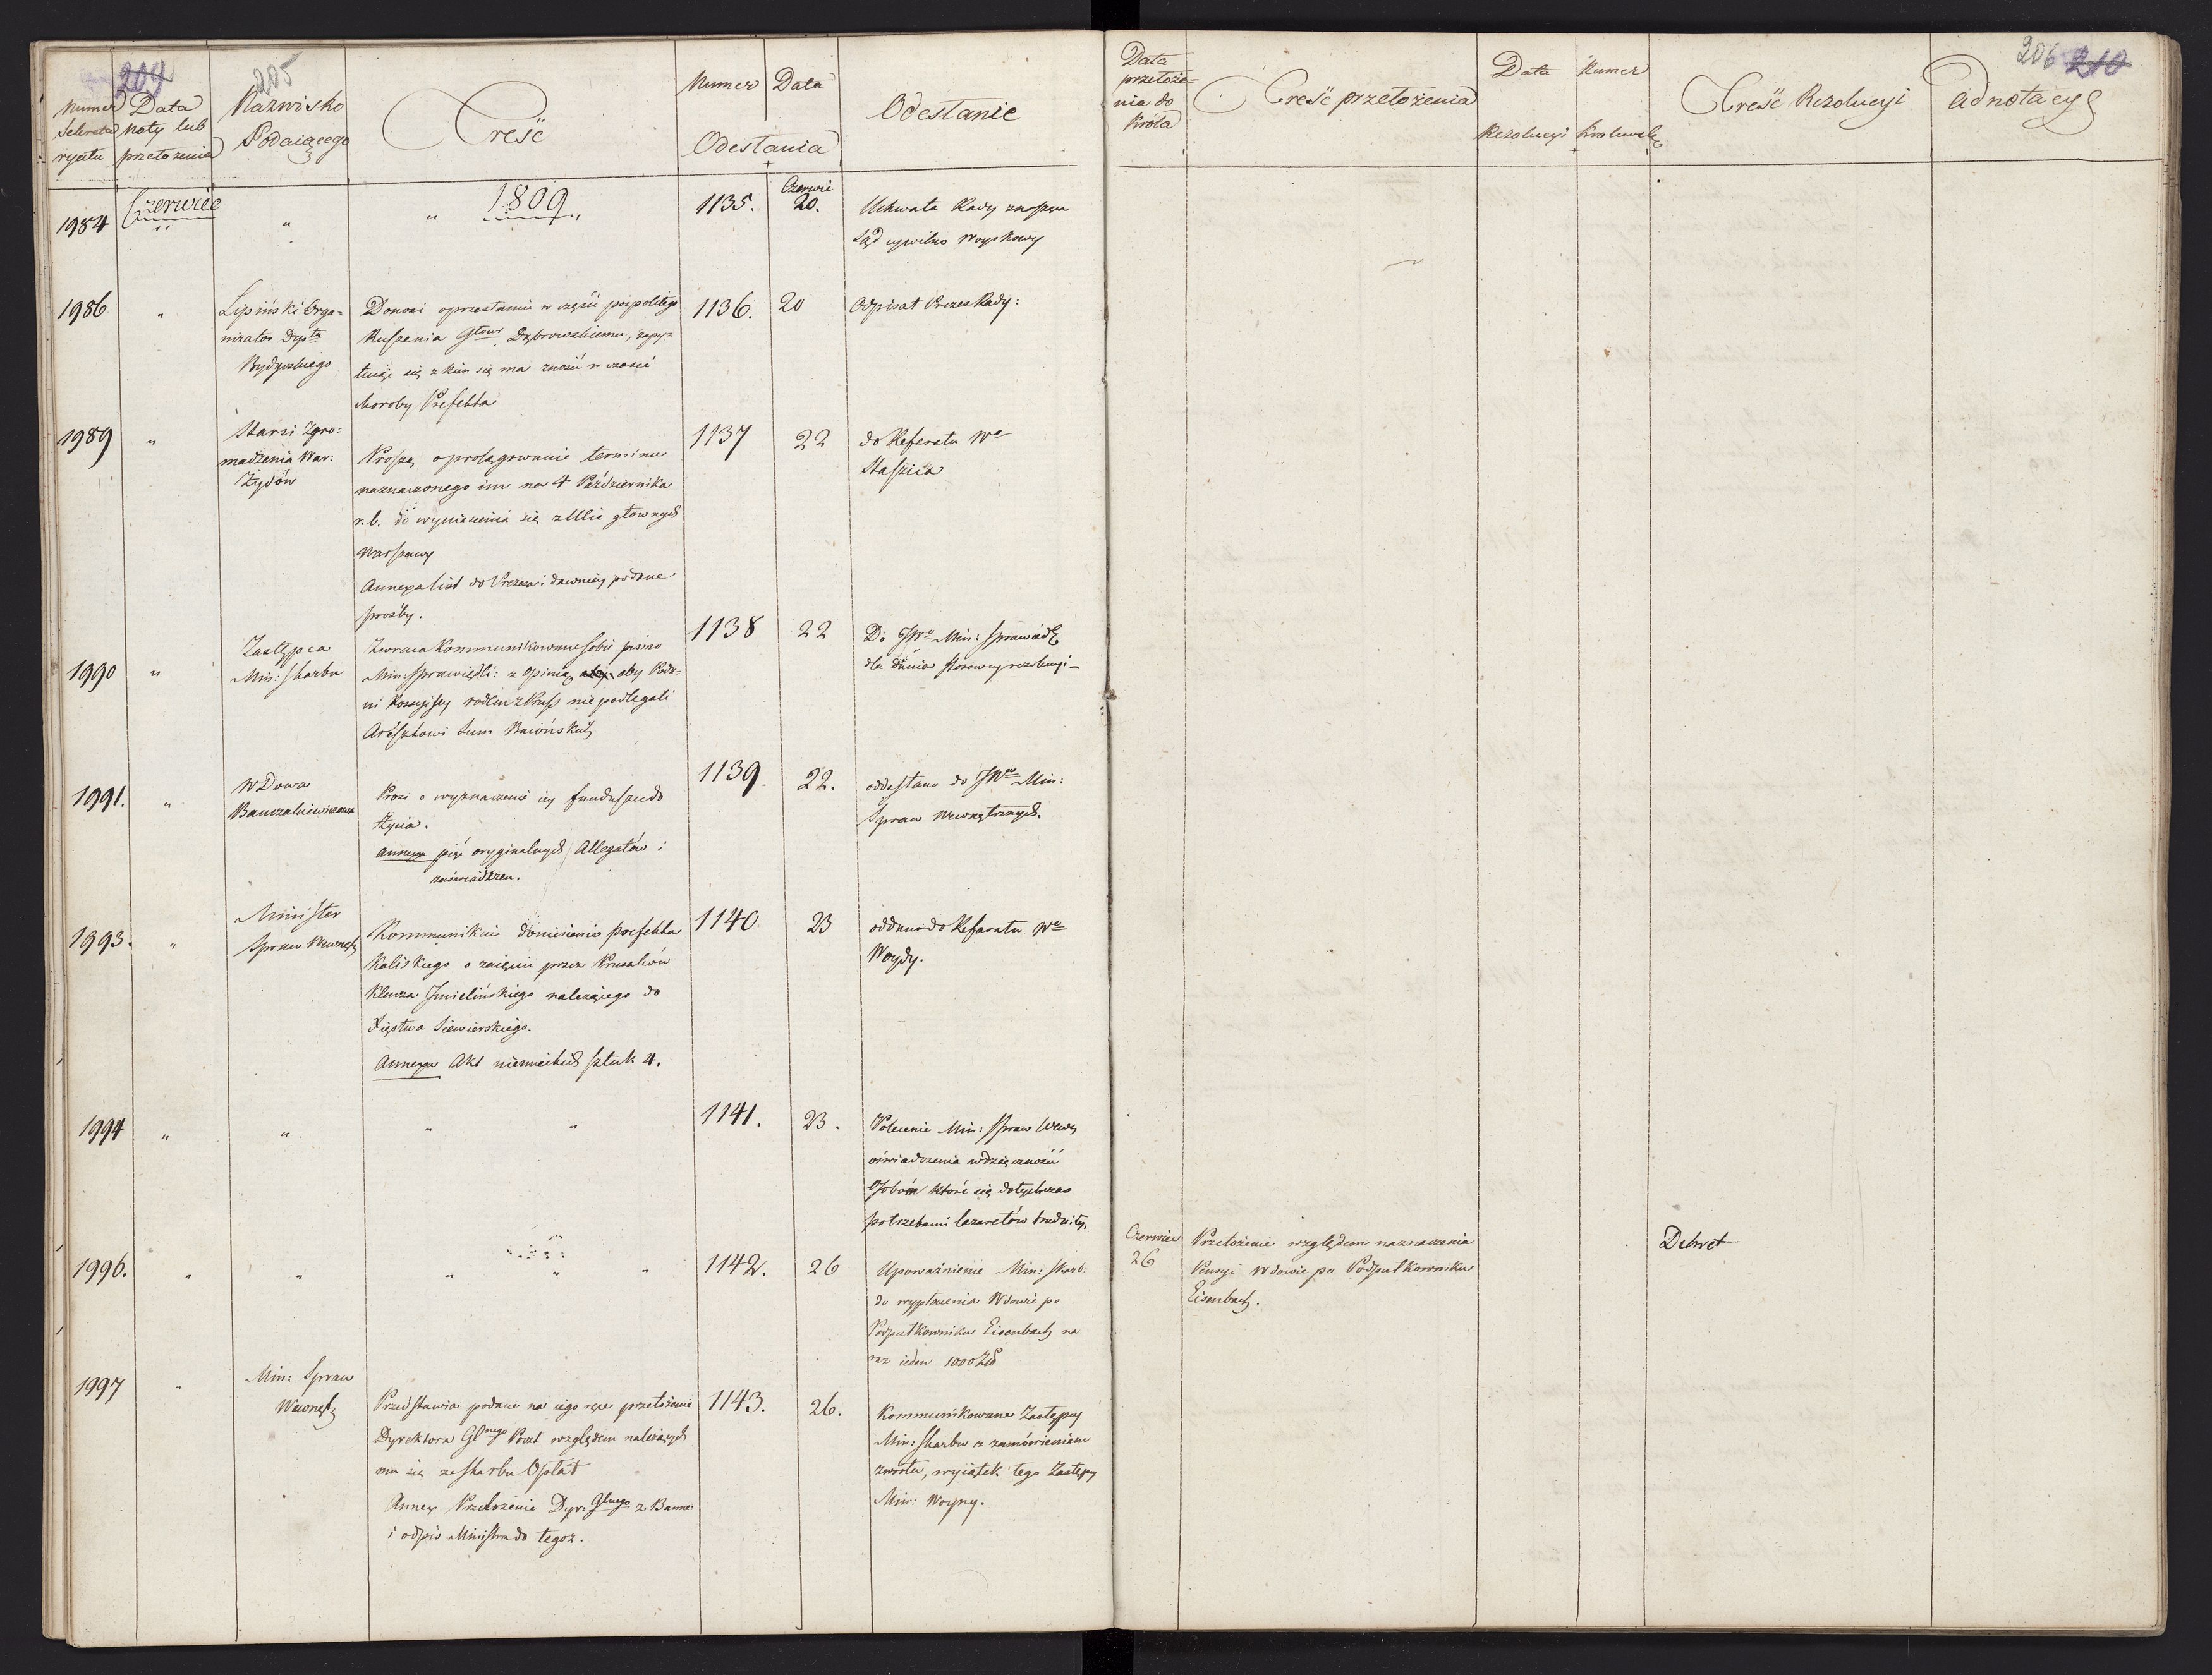 209
205
Numer
Sekreta
ryatu
Data
noty lub
przełożenia
Nazwisko
Podaiącego
Treść
Numer
Data
Odesłania
Odesłanie
Czerwiec
1809
1984
"
"
1135.
Czerwie
20.
Uchwała Rady znosząca
Sąd cywilno Woyskowy
1986
"
Lipiński Orga-
nizator Dept
Bydgoskiego
Donosi o przesłaniu w części pospolitego
Ruszenia Dąbrowskiemu, zapy-
tuiąc się z kim się ma znosić w czasie
choroby Prefekta
1136.
20
Odpisał Prezes Rady:
1989
"
Starsi Zgro-
madzenia War:
Żydów
Proszą o prolągowanie terminu
naznaczonego im na 4 Października
r. b. do wyniesienia się z Ulic głownych
Warszawy
Annexa list do Prezesa i dawniey podane
prośby.
1137
22
do Referatu Wo
Staszica
1990
"
Zastępca
Min: Skarbu
Zwraca Kommunikowane sobie pismo
Min: Sprawiedli: z Opinią aby
nie podlegali
Aresztowi Sum Baiońskich
1138
22
Do JWo Min: Sprawiedl
dla dania stosowney rezolucyi
1991.
"
Wdowa
Prosi o wyznaczenie iey funduszu do
życia.
Annexa pięć oryginalnych Allegatów i
zaświadczeń.
1139
22.
odesłano do JWo Min:
Spraw Wewnętrznych.
1993.
"
Minister
Spraw Wewnęt
Kommunikuie doniesienie Prefekta
Kaliskiego o zaięciu przez Prusaków
Klucza Imielińskiego należącego do
Xięstwa Siewierskiego.
Annexa Akt niemieckich sztuk 4.
1140
23
oddano do Referatu Wo
Woydy.
1994
"
"
"
"
1141.
23.
Polecenie Min: Spraw Wewn
oświadczenia wdzięczności
Osobom które się dotychczas
potrzebami lazaretów trudniły.
1996.
"
"
"
"
"
1142.
26
Upoważnienie Min: Skarb:
do wypłacenia Wdowie po
Podpułkowniku Eisenbach na
raz ieden 1000 Zł
1997
"
Min: Spraw
Wewnętz
Przedstawia podane na iego ręce przełożenie
Dyrektora Glnego Poczt względem należących
mu się ze Skarbu Opłat
Annex Przełożenie Dyr: Glnego
i odpis Ministra do tegoż.
1143.
26.
Kommunikowane Zastępcy
Min: Skarbu z zamówieniem
zwrotu, wyiątek tego Zastępcy
Min: Woyny.
206 210
Data
przełoże-
nia do
Króla
Treść przełożenia
Data
Numer
Rezolucyi Krolewskiey
Treść Rezolucyi
Adnotacye
Czerwiec
26
Przełożenie względem naznaczenia
Pensyi Wdowie po Podpułkowniku
Eisenbach.
Dekret